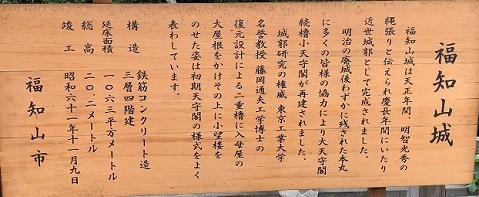 福知山城
福知山城は天正年間、明智光秀の
縄張りと伝えられ慶長年間にいたり
近世城郭として完成されました。
明治の廃城後わずかに残された本丸
に多くの皆様の協力により大天守閣
続櫓小天守閣が再建されました。
城郭研究の権威、東京工業大学
名誉教授 藤岡通夫工学博士の
復元設計による二重櫓に入母屋の
大屋根をかけその上に小望楼を
のせた姿は初期天守閣の様式をよく
表わしています。
構造 鉄筋コンクリート造
三層四階建
延床面積 一〇六三平方メートル
総高 二〇.二メートル
竣工 昭和六十一年十一月九日
福知山市